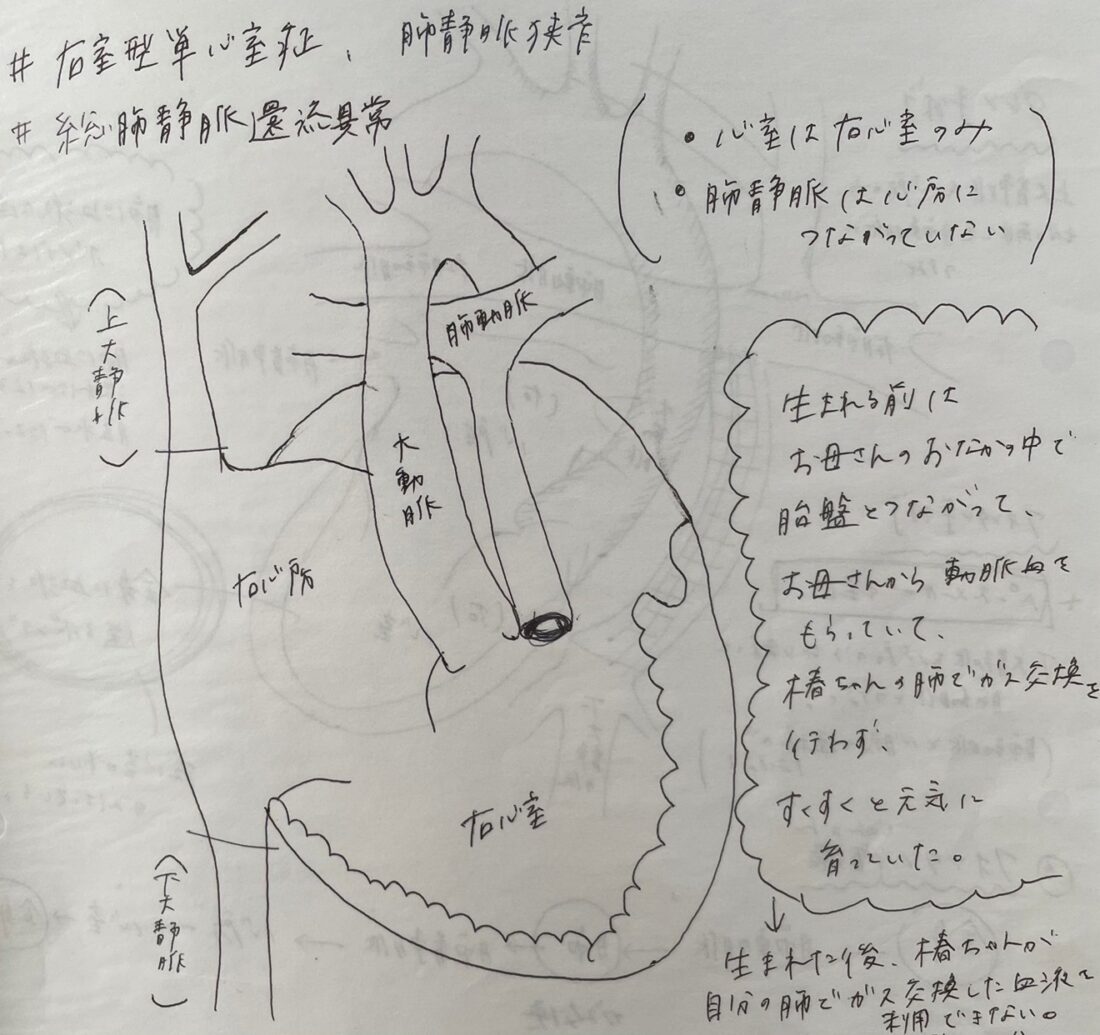 # 右室型単心室症、肺静脈狭窄
# 総肺静脈還流異常
・心室は右心室のみ
・肺静脈は心房に
つながっていない
(上大静脈)
肺動脈
大動脈
右心房
右心室
(下大静脈)
生まれる前は
お母さんのおなかの中で
胎盤とつながって、
お母さんから動脈血を
もらっていて、
椿ちゃんの肺でガス交換を
行わず、
すくすくと元気に
育っていた。
↓
生まれた後、椿ちゃんが
自分の肺でガス交換した血液を
利用できない。